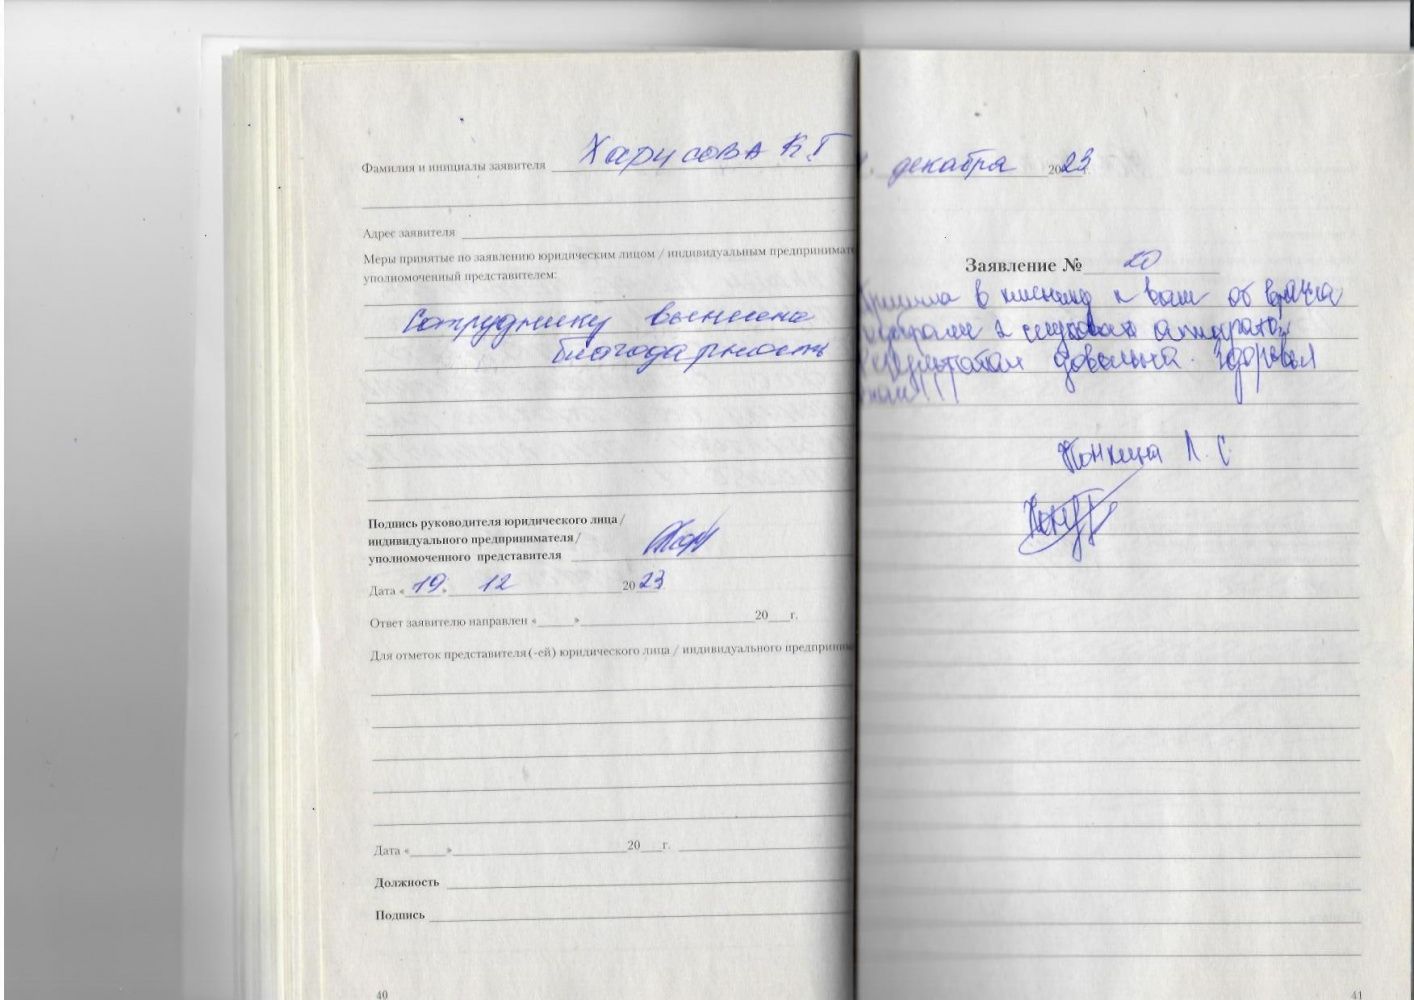 Фамилия и инициалы заявителя Харисова К.Г
Адрес заявителя
Меры принятые по заявлению юридическим лицом / индивидуальным предпринимате
уполномоченный представителем:
Сотруднику вынесена
благодарность
Подпись руководителя юридического лица /
индивидуального предпринимателя /
уполномоченного представителя
Дата « 19 » 12 20 23
Ответ заявителю направлен «____» ____ 20__г.
Для отметок представителя (-ей) юридического лица / индивидуального предприни
Дата «____» ____ 20__г.
Должность
Подпись
40
декабря 2023
Заявление № 20
в клинику к вам от врача
2 слуховых аппарата.
довольна. Здоровья
Л. С.
41